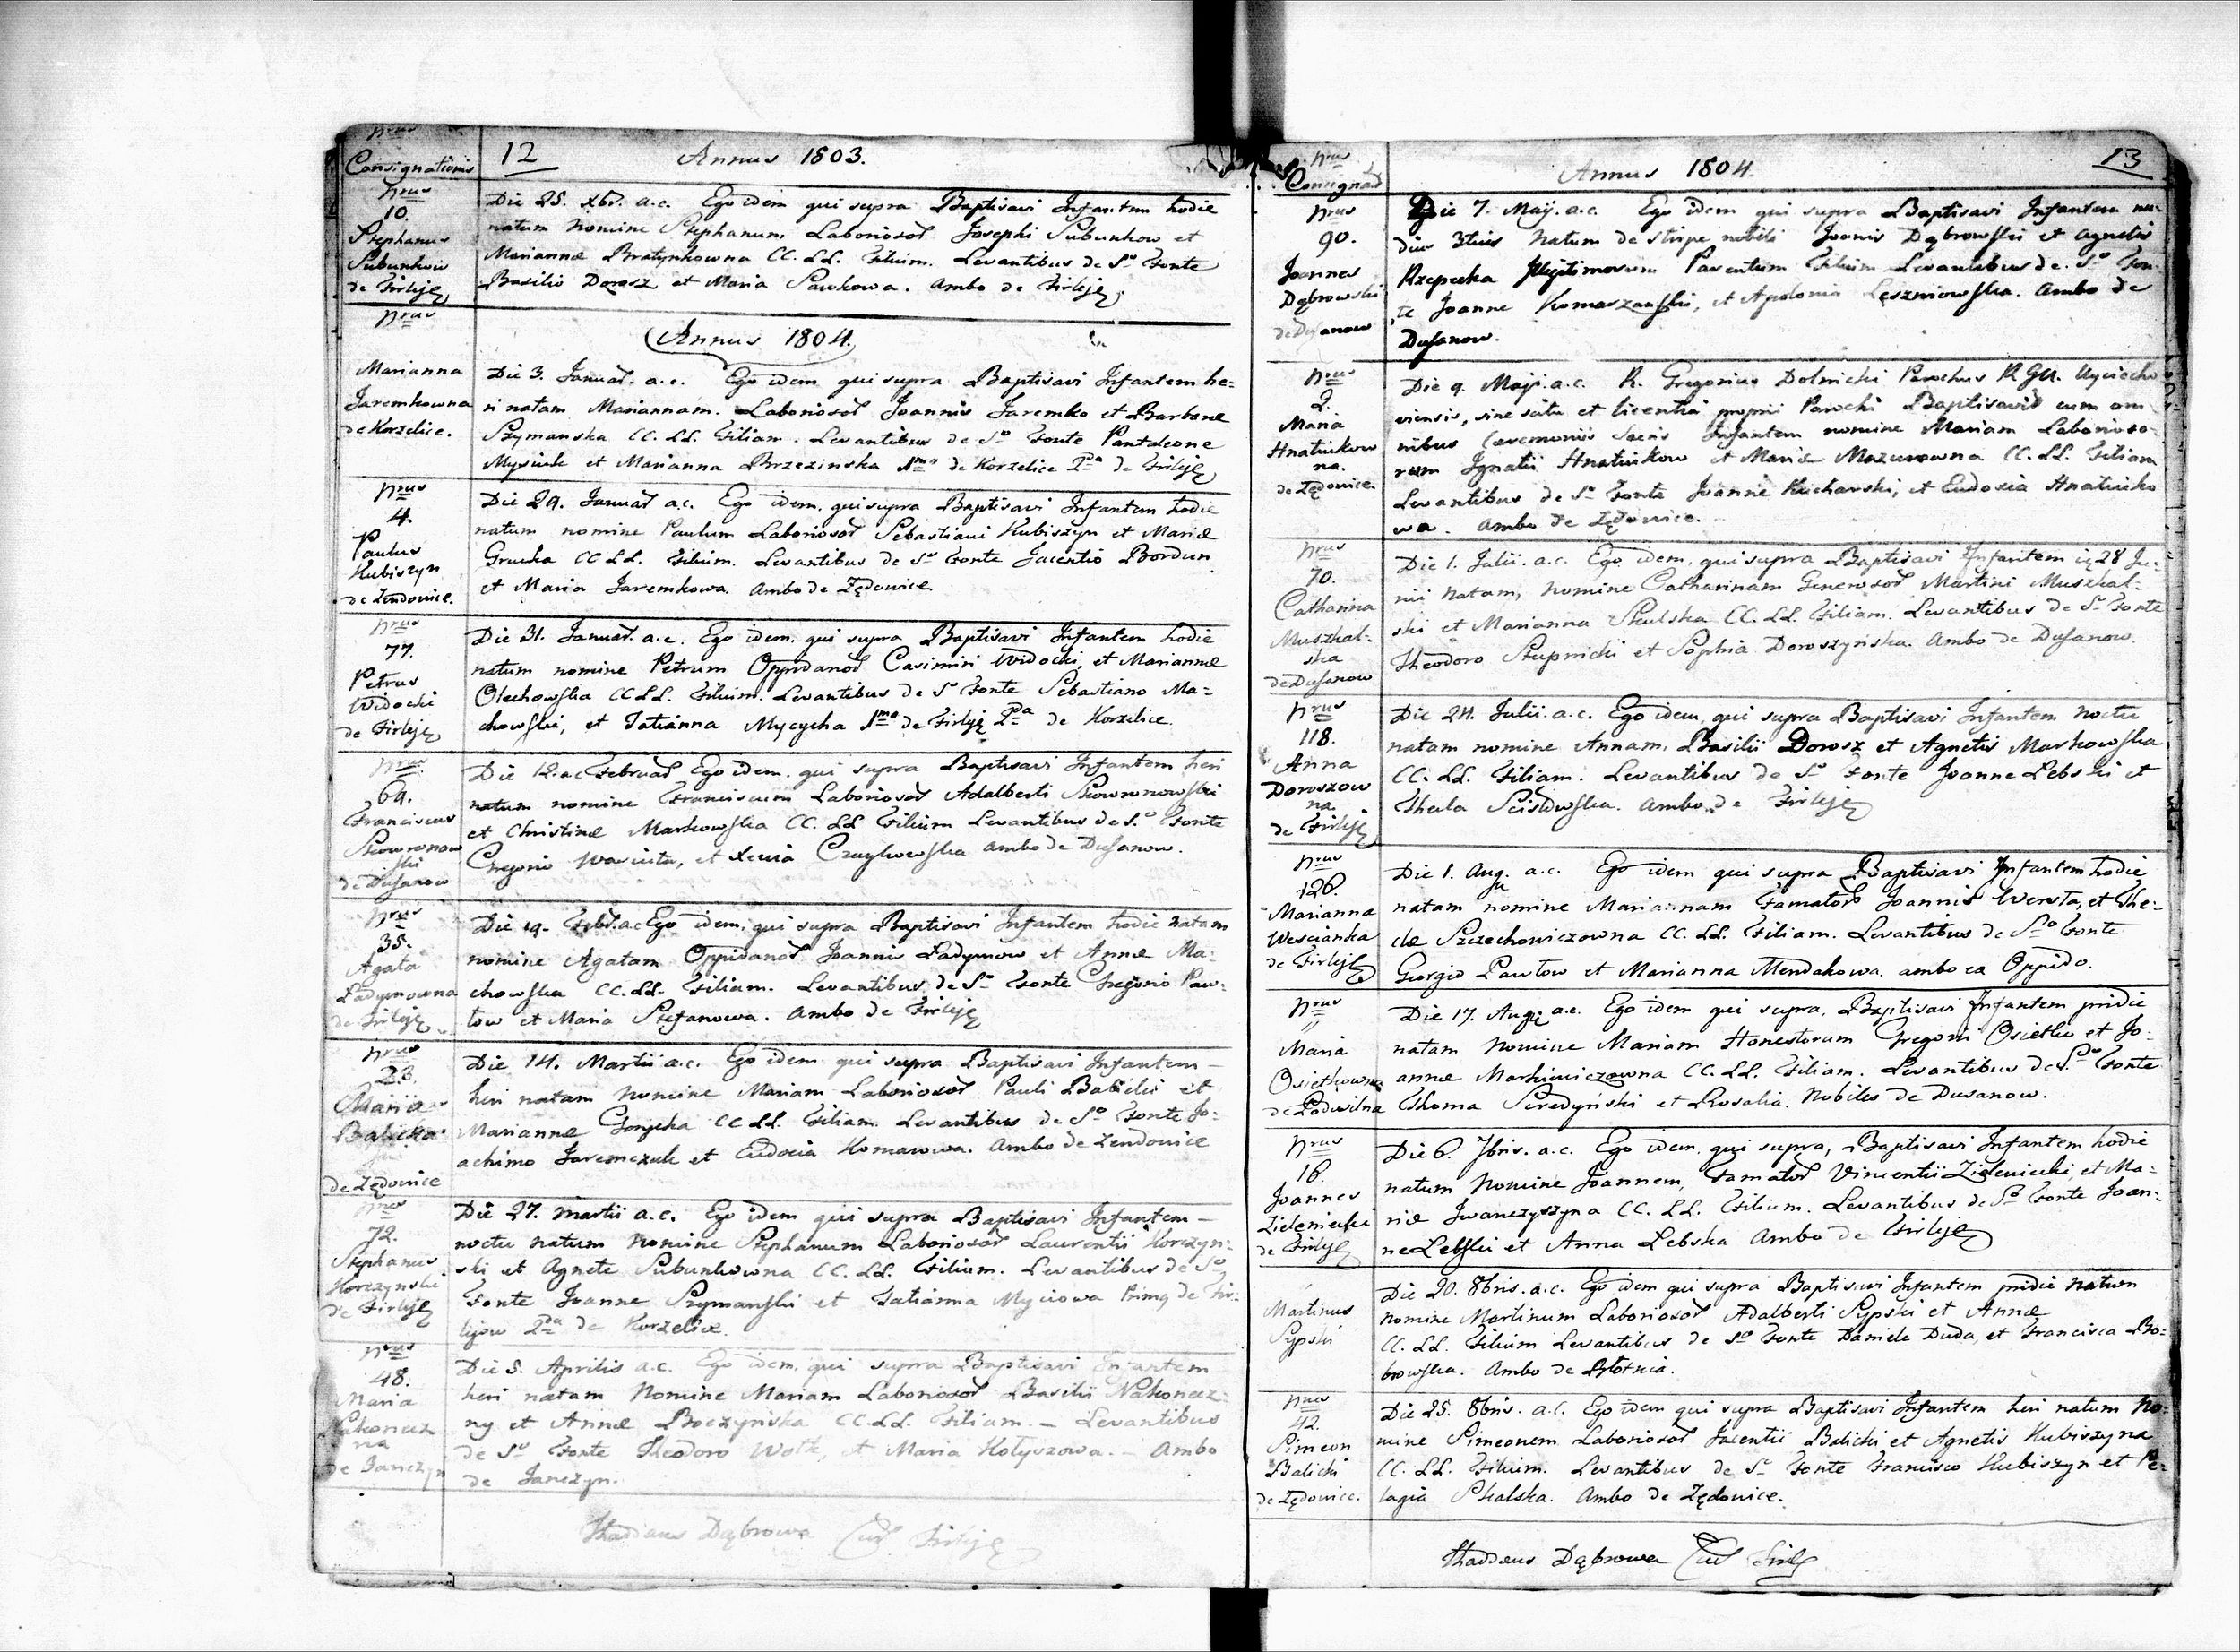 Nrus
Consignationis
12
Annus 1803.
Nrus
10.
Stephanus
Subunkow
de Firleję
Die 25. Xbr. a.c. Ego idem qui supra Baptisavi Infantem hodie
natum Nomine Stephanum Laborioso[rum] Josephi Subunkow et
Mariannæ Bratynkowna CC. LL. Filium. Levantibus de So Fonte
Basilio Dorosz et Maria Sawkowa. Ambo de Firleję
Nrus
Annus 1804.
Marianna
Jaremkowna
de Korzelice.
Die 3. Januar. a.c. Ego idem qui supra Baptisavi Infantem he=
ri natam Mariannam. Laborioso[rum] Joannis Jaremko et Barbaræ
Szymanska CC. LL. Filiam. Levantibus de So Fonte Pantaleone
Mysiuk et Marianna Brzezinska 1mo de Korzelice 2da de Firleję
Nrus
4.
Paulus
Kubiszyn
de Zendowice.
Die 29. Januar a.c. Ego idem qui supra Baptisavi Infantem hodie
natum nomine Paulum Laborioso[rum] Sebastiani Kubiszyn et Mariæ
Grucka CC LL. Filium. Levantibus de So Fonte Jacentio Bordun
et Maria Jaremkowa. Ambo de Zędowice.
Nrus
77.
Petrus
Widocki
de Firleję
Die 31. Januar. a.c. Ego idem qui supra Baptisavi Infantem hodie
natum nomine Petrum Oppidano[rum] Casimiri Widocki, et Mariannæ
Olechowska CC LL. Filium. Levantibus de So Fonte Sebastiano Ma=
chowski, et Tatianna Mycycha 1mo de Firleję 2da de Korzelice.
Nrus
69.
Franciscus
Skowronow
ski
de Dusanow
Die 12. a.c. Februar Ego idem qui supra Baptisavi Infantem heri
natum nomine Franciscum Laborioso[rum] Adalberti Skowronowski
et Christinæ Markowska CC. LL Filium Levantibus de So Fonte
Gregorio Wasiuta, et Xenia Czaykowska ambo de Dusanow.
Nrus
35.
Agata
Ladymowna
de Firleję
Die 19. Febr. a.c. Ego idem qui supra Baptisavi Infantem hodie natam
nomine Agatam Oppidano[rum] Joannis Ladymow et Annæ Ma=
chowska CC. LL. Filiam. Levantibus de So Fonte Gregorio Paw=
low et Maria Stefanowa. Ambo de Firleję
Nrus
23.
Maria
Balicka
de Zędowice
Die 14. Martii a.c. Ego idem qui supra Baptisavi Infantem –
heri natam Nomine Mariam Laborioso[rum] Pauli Balicki et
Mariannæ CC LL. Filiam. Levantibus de So Fonte Jo=
achimo Jaremczuk et Eudocia Komarowa. Ambo de Zendowice
Nrus
72.
Stephanus
Korczynski
de Firleję
Die 27. Martii a.c. Ego idem qui supra Baptisavi Infantem –
noctu natum Nomine Stephanum Laborioso[rum] Laurentii Korczyn=
ski et Agnete Subunkowna CC. LL. Filium. Levantibus de So
Fonte Joanne Szymanski et Tatianna Myciowa Prima de Fir=
lejow 2da de Korzelice.
Nrus
48.
Maria
Nakonecz
na
de Janczyn
Die 5. Aprilis a.c. Ego idem qui supra Baptisavi Infantem
heri natam Nomine Mariam Laborioso[rum] Basilii Nakonecz=
ny et Annæ Boczynska CC. LL. Filiam. – Levantibus
de So Fonte Theodoro Wolk, et Maria Kotyszowa. – Ambo
de Janczyn.
Thaddæus Dąbrowa Cur Firleję
Nrus
Consignat
Annus 1804.
13
Nrus
90.
Joannes
Dąbrowski
de Dusanow
Die 7. Maij. a.c. Ego idem qui supra Baptisavi Infantem nu=
dius 3tius Natum de stirpe nobili Joanis Dąbrowski et Agnetis
Rzepecka legitimorum Parentum Filium Levantibus de So Fon=
te Joanne Komarzanski, et Apolonia Leszniowska. Ambo de
Dusanow.
Nrus
2.
Maria
Hnatiukow
na.
de Zędowice.
Die 9. Maji. a.c. R. Gregorius Dolnicki Parochus R. Gr. Uyciecho
viensis, sine scitu et licentia proprii Parochi Baptisavit cum om
nibus Ceremoniis Sacris Infantem nomine Mariam Laborioso=
rum Ignatii Hnatiukow et Mariæ Mazurowna CC. LL. Filiam
Levantibus de So Fonte Joanne Kucharski, et Eudocia Hnatiuko
wa. Ambo de Zędowice.
Nrus
70.
Catharina
Muszkal=
ska
de Dusanow
Die 1. Julii. a.c. Ego idem, qui supra Baptisavi Infantem 28 Ju=
nii Natam, Nomine Catharinam Generoso[rum] Martini Muszkal=
ski et Marianna Skulska CC. LL. Filiam. Levantibus de So Fonte
Theodoro Stupnicki et Sophia Doroszynska. Ambo de Dusanow.
Nrus
118.
Anna
Doroszow
na.
de Firleję
Die 24. Julii. a.c. Ego idem, qui supra Baptisavi Infantem noctu
natam nomine Annam. Basilii Dorosz et Agnetis Markowska
CC. LL. Filiam. Levantibus de So Fonte Joanne Lebski et
Thecla Scislowska. Ambo de Firleję
Nrus
126.
Marianna
Wescianka
de Firleję
Die 1. Aug. a.c. Ego idem qui supra Baptisavi Infantem hodie
natam nomine Mariannam Famato[rum] Joannis Wersta, et The=
clæ Szczechowiczowna CC. LL. Filiam. Levantibus de So Fonte
Georgio Pawlow et Marianna Mendakowa. ambo ea Oppido.
Nrus
"
Maria
Osietkowna
de Podusilna
Die 17. Aug. a.c. Ego idem qui supra, Baptisavi Infantem pridie
natam Nomine Mariam Honestorum Gregorii Osietko et Jo=
annæ Markiewiczowna CC. LL. Filiam. Levantibus de So Fonte
Thoma Seredyński et Rosalia. Nobiles de Dusanow.
Nrus
16.
Joannes
Zieleniecki
de Firleję
Die 6. 7bris. a.c. Ego idem qui supra, Baptisavi Infantem hodie
natum Nomine Joannem, Famato[rum] Vincentii Zieleniecki, et Ma=
riæ Iwanczyszyna CC. LL. Filium. Levantibus de So Fonte Joan=
ne Lebski et Anna Lebska Ambo de Firleję
Martinus
Sypski
Die 20. 8bris. a.c. Ego idem qui supra Baptisavi Infantem pridie natum
nomine Martinum Laborioso[rum] Adalberti Sypski et Annæ
CC. LL. Filium Levantibus de So Fonte Daniele Duda, et Francisca Bo=
browska. Ambo de Blotnia.
Nrus
42.
Simeon
Balicki
de Zędowice.
Die 25. 8bris. a.c. Ego idem qui supra Baptisavi Infantem heri natum No=
mine Simeonem Laborioso[rum] Jacentii Balicki et Agnetis Kubiszyna
CC. LL. Filium. Levantibus de So Fonte Francisco Kubiszyn et Pe=
lagia Skalska. Ambo de Zędowice.
Thaddæus Dąbrowa Cur Firl